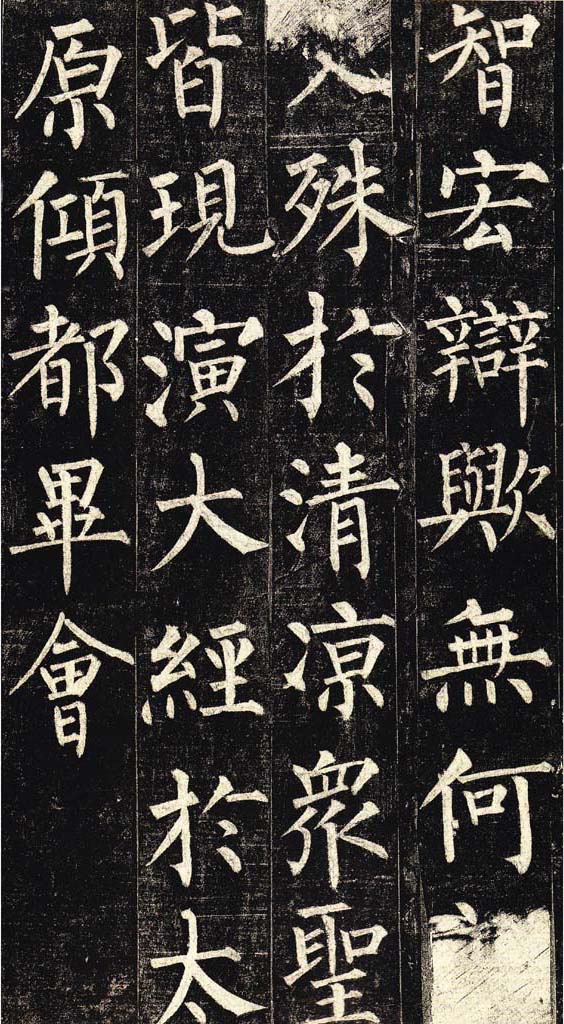 智宏辯歟無何
入殊於清涼衆聖
皆現演大經於太
原傾都畢會